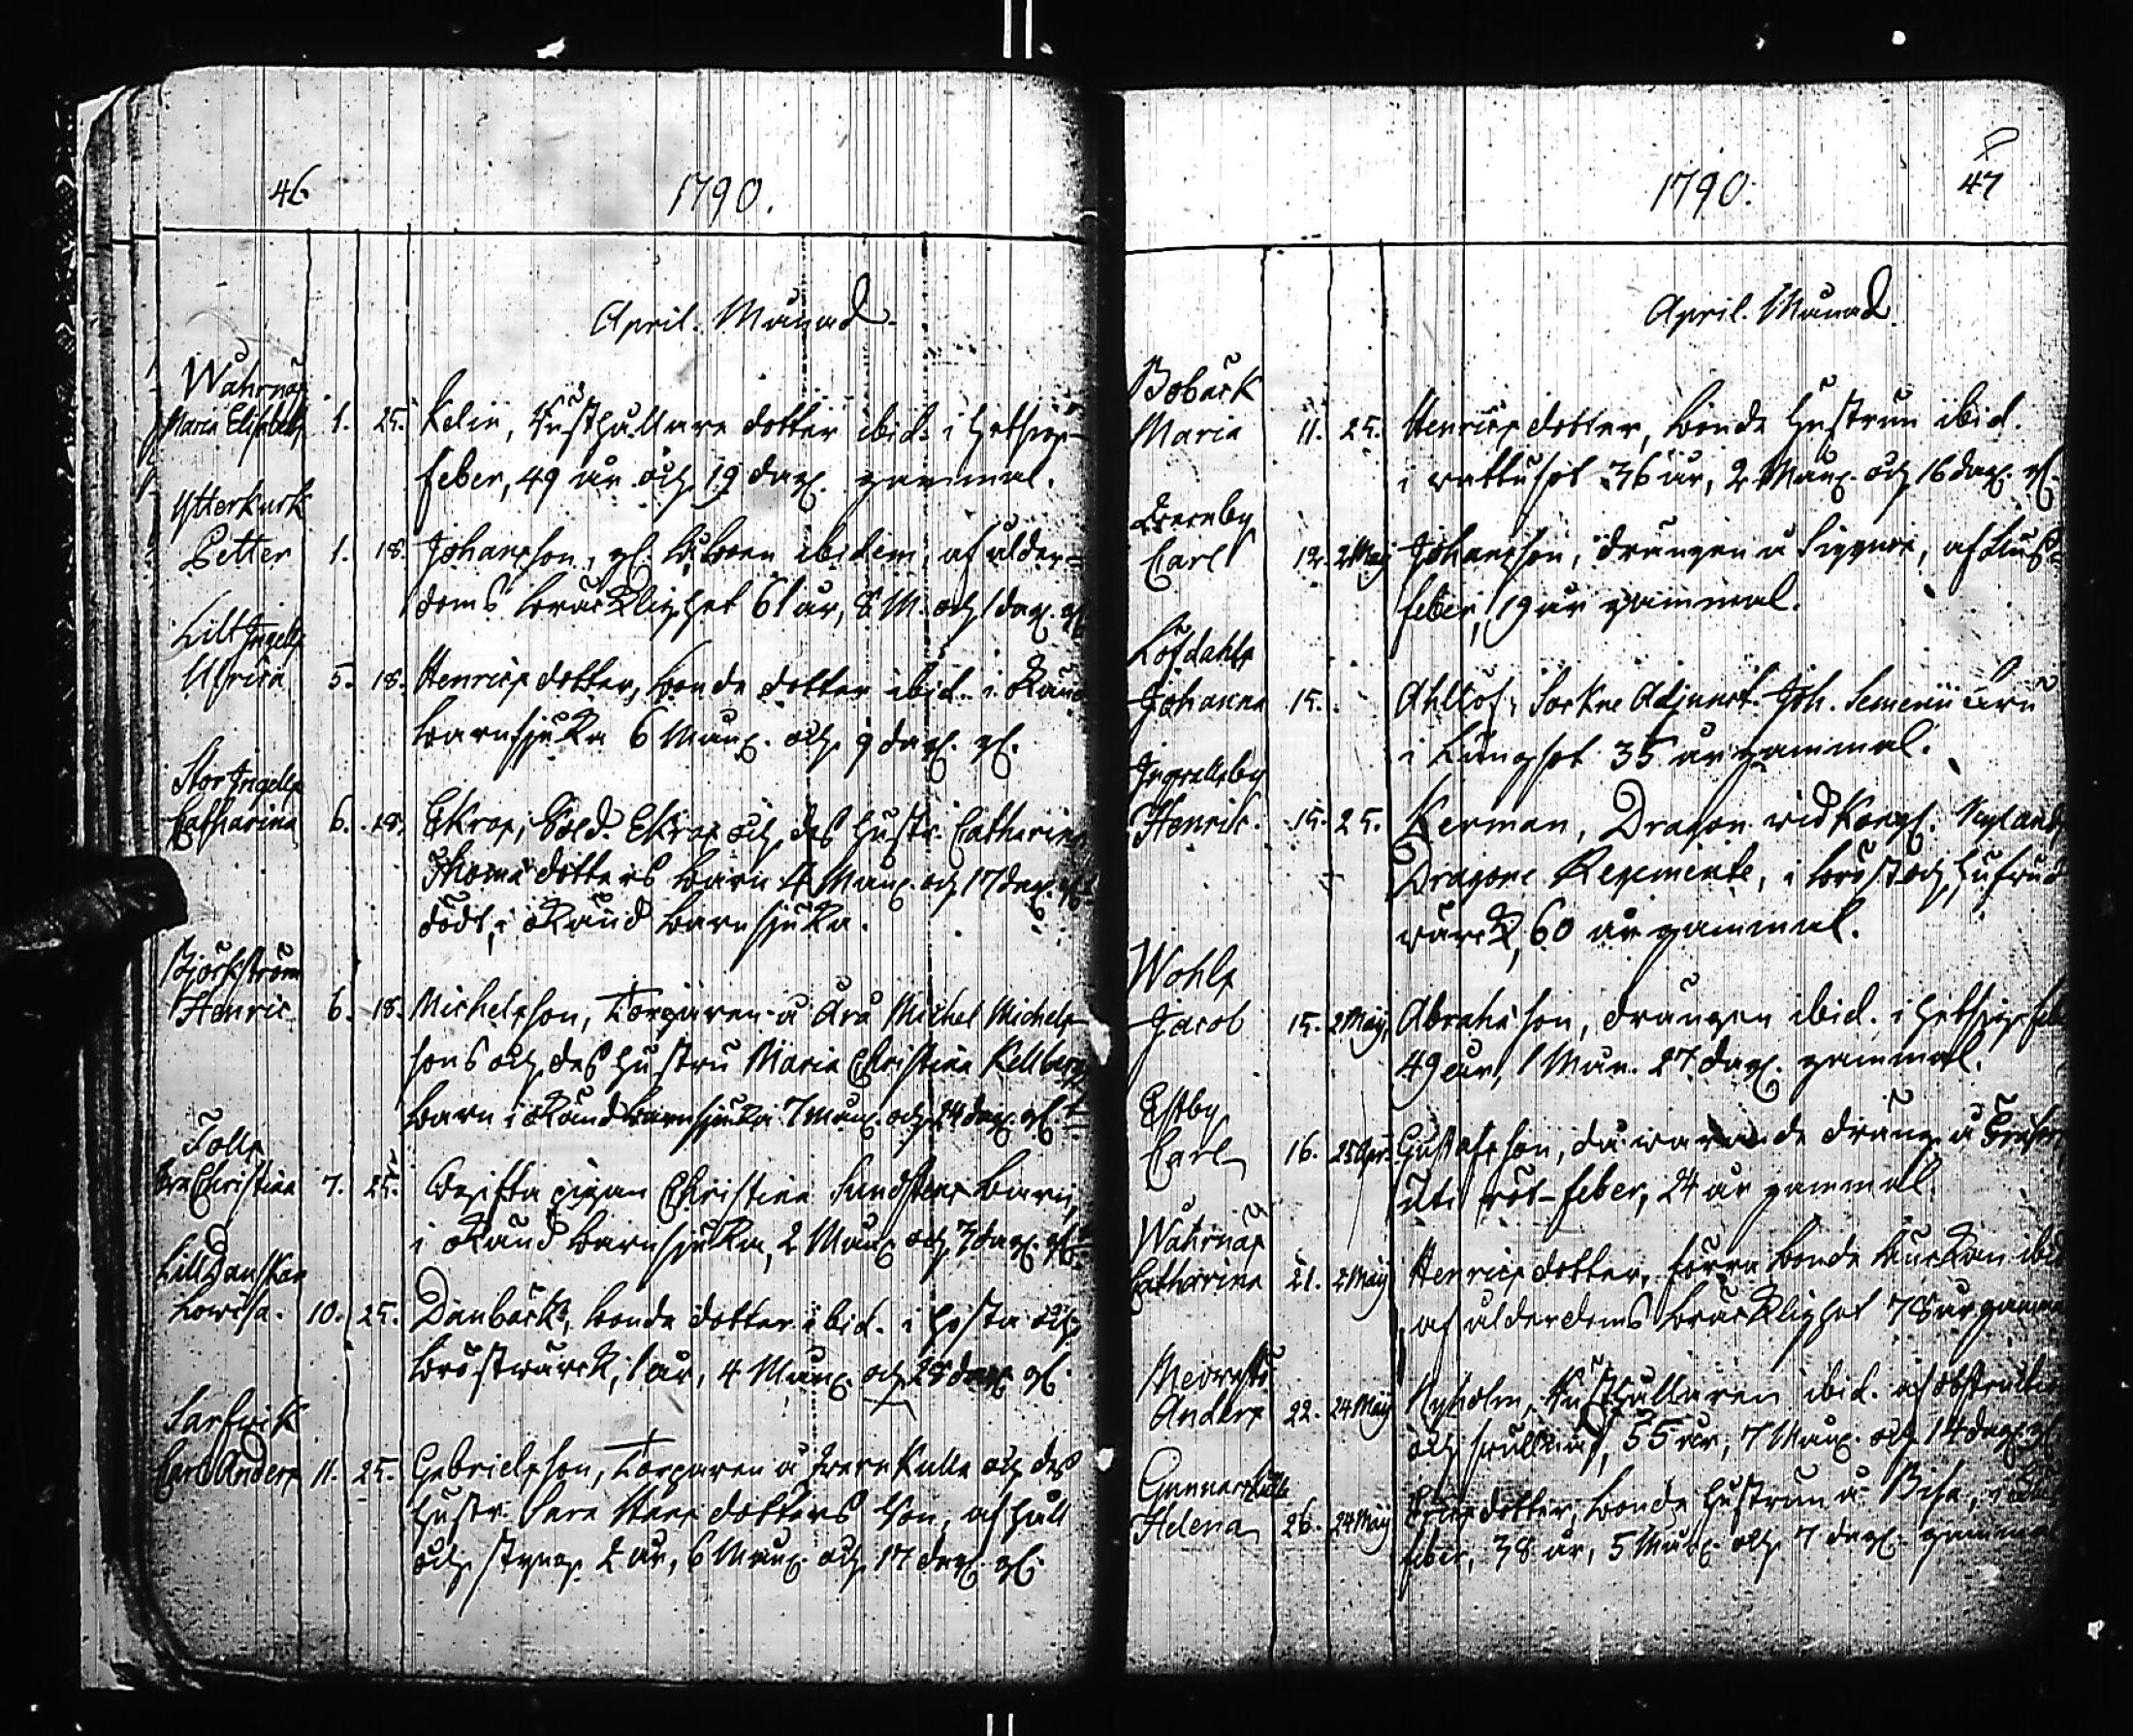 46
1790.
April. Månad.
Wahrnäs
Maria Elisabeth 1. 25. Kelin, Rusthållare dotter ibid. i hetsig
feber, 49 år och 19 dag. gammal.
Ytterkurk
Petter 1. 18. Johansson, gl. ibidem, af ålder-
doms bräcklighet 61 år, 8 M. och 1 dag. gl.
Lill Ingels
Ulrica 5. 18. Henricsdotter, bonde dotter ibid. i okänd
barnsjuka 6 Mån. och 9 dag. gl.
Stor Ingels
Catharina 6. 18. Ekros, Sold. Ekros och des hustr. Catharina
Thomædotters barn 4 Mån. och 17 dag. gl.
dödt, i okänd barnsjuka.
Björkström
Henric 6. 18. Michelsson, Torparen å Michel Michels-
sons och des hustru Maria Christina Kellbergs
barn i okänd barnsjuka 7 Mån. och 24 dag. gl.
Tolls
Christina 7. 25. Ogifta pigan Christina Sundstens barn,
i okänd barnsjuka, 2 Mån. och 7 dag. gl.
Lill Danskan
Lowisa. 10. 25. Danbäck, bonde dotter ibid. i hosta och
bröstwärck, 1 år, 4 Mån. och 28 dag. gl.
Sarfwik
Carl Anders 11. 25. Gabrielsson, Torparen å kulla och des
hustr. Sara dotters Son, af håll
och styng 2 år, 6 Mån. och 17 dag. gl.
47
1790.
April. Månad.
Bobäck
Maria 11. 25. Henricsdotter, bonde hustrun ibid.
i wattusot 36 år, 2 Mån. och 16 dag. gl.
Carl 12. 2 Maij Johansson, drängen å Siggnäs, af
feber, 19 år gammal.
Löfdahls
Johanna 15. Ahllöf, Sockne Adjunct. Joh.
i Lungsot 35 år gammal.
Ingwallsby
Henric. 15. 25. Kerman, Dragon wid Kongl. Nylands
Dragone Regemente, i bröst och hufwud
wärck, 60 år gammal.
Wohls
Jacob 15. 2 Maij, Abrahæson, drängen ibid. i hetsig feber
49 år, 1 Mån. 27 dag. gammal.
Estby
Carl 16. 25 Apr. Gustafsson, då warande dräng å
uti röt-feber, 24 år gammal.
Wåhrnäs
Catharina 21. 2 Maij Henricsdotter, förra bonde ibid
af ålderdoms bräcklighet 78 år gammal
Anders 22. 24 Maij Nyholm, Rusthållaren ibid. af obstruction
och 55 år, 7 Mån. och 14 dag. gl.
Gunnarskulla
Helena 26. 24 Maij Ericsdotter, bonde hustrun å Bisa, i
feber, 38 år, 5 Mån. och 7 dag. gammal